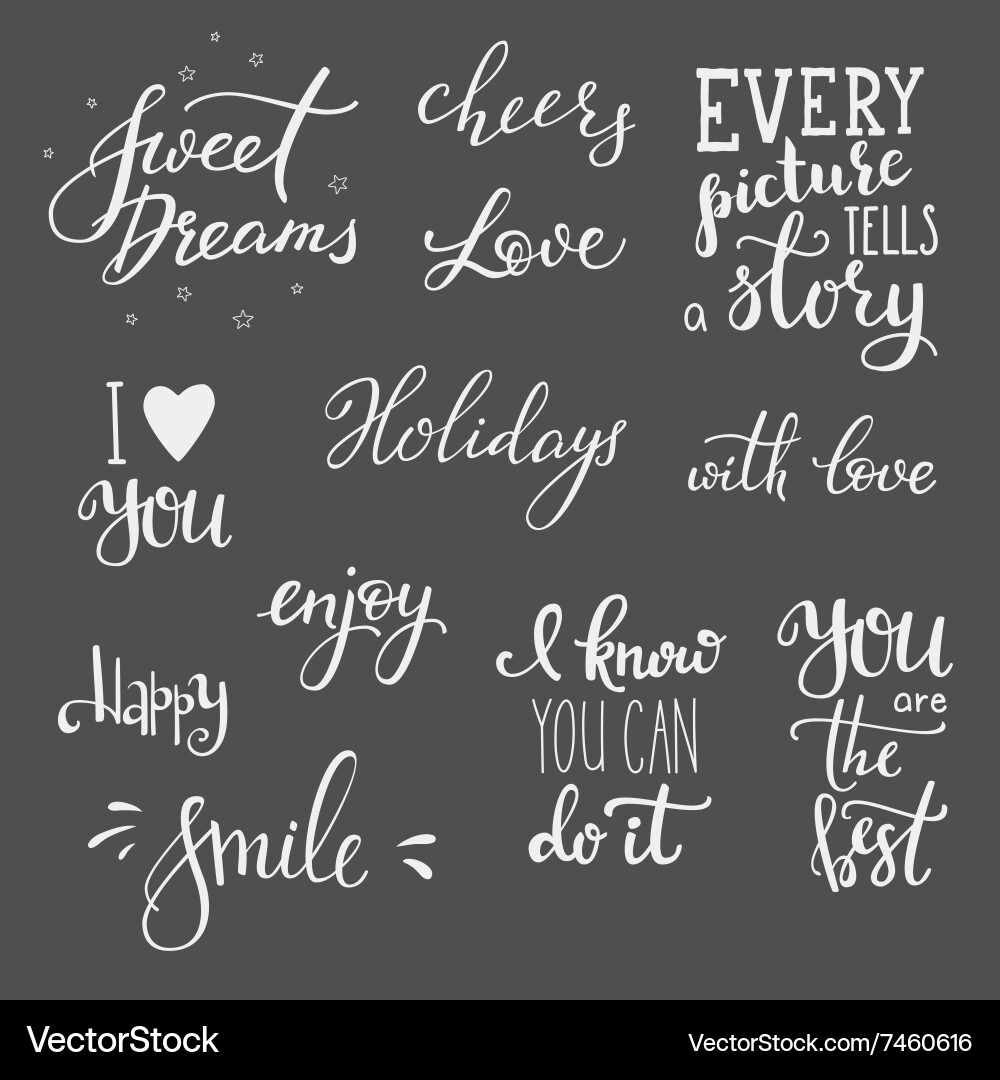 Sweet
Dreams
cheers
Love
EVERY
picture
TELLS
a story
I ♥
you
Holidays
with love
enjoy
Happy
smile
I know
YOU CAN
do it
you
are
the
best
VectorStock
VectorStock.com/7460616